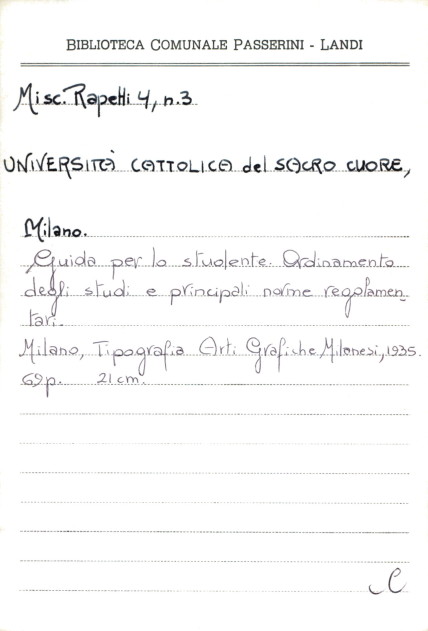 BIBLIOTECA COMUNALE PASSERINI - LANDI
Misc. Rapetti 4, n.3
UNIVERSITÀ CATTOLICA del SACRO CUORE,
Milano.
Guida per lo studente. Ordinamento
degli studi e principali norme regolamen-
tari.
Milano, Tipografia Arti Grafiche Milanesi, 1935.
69p. 21 cm.